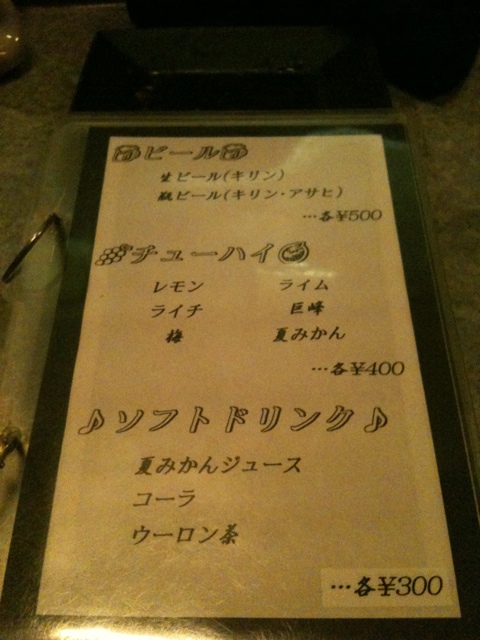 ビール
生ビール(キリン)
瓶ビール(キリン・アサヒ)
…各¥500
チューハイ
レモン ライム
ライチ 巨峰
梅 夏みかん
…各¥400
♪ソフトドリンク♪
夏みかんジュース
コーラ
ウーロン茶
…各¥300